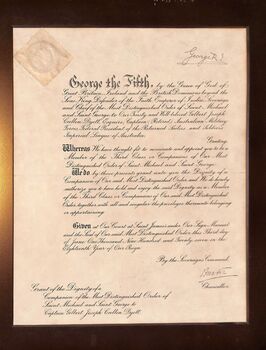 George R.I.
George the Fifth, by the Grace of God of
Great Britain, Ireland and the British Dominions beyond the
Seas King, Defender of the Faith, Emperor of India, Sovereign
and Chief of the Most Distinguished Order of Saint Michael
and Saint George to Our Trusty and Well beloved Gilbert Joseph
Cullen Dyett, Esquire, Captain (Retired) Australian Military
Forces, Federal President of the Returned Sailors and Soldiers
Imperial League of Australia
Greeting
Whereas We have thought fit to nominate and appoint you to be a
Member of the Third Class or Companion of Our Most
Distinguished Order of Saint Michael and Saint George
We do by these presents grant unto you the Dignity of a
Companion of Our said Most Distinguished Order and We do hereby
authorize you to have hold and enjoy the said Dignity as a Member
of the Third Class or Companion of Our said Most Distinguished
Order together with all and singular the privileges thereunto belonging
or appertaining.
Given at Our Court at Saint James's under Our Sign Manual
and the Seal of Our said Most Distinguished Order this Third day
of June One Thousand Nine Hundred and Twenty seven in the
Eighteenth Year of Our Reign.
By the Sovereign's Command.
Chancellor.
Grant of the Dignity of a
Companion of the Most Distinguished Order of
Saint Michael and Saint George to
Captain Gilbert Joseph Cullen Dyett.